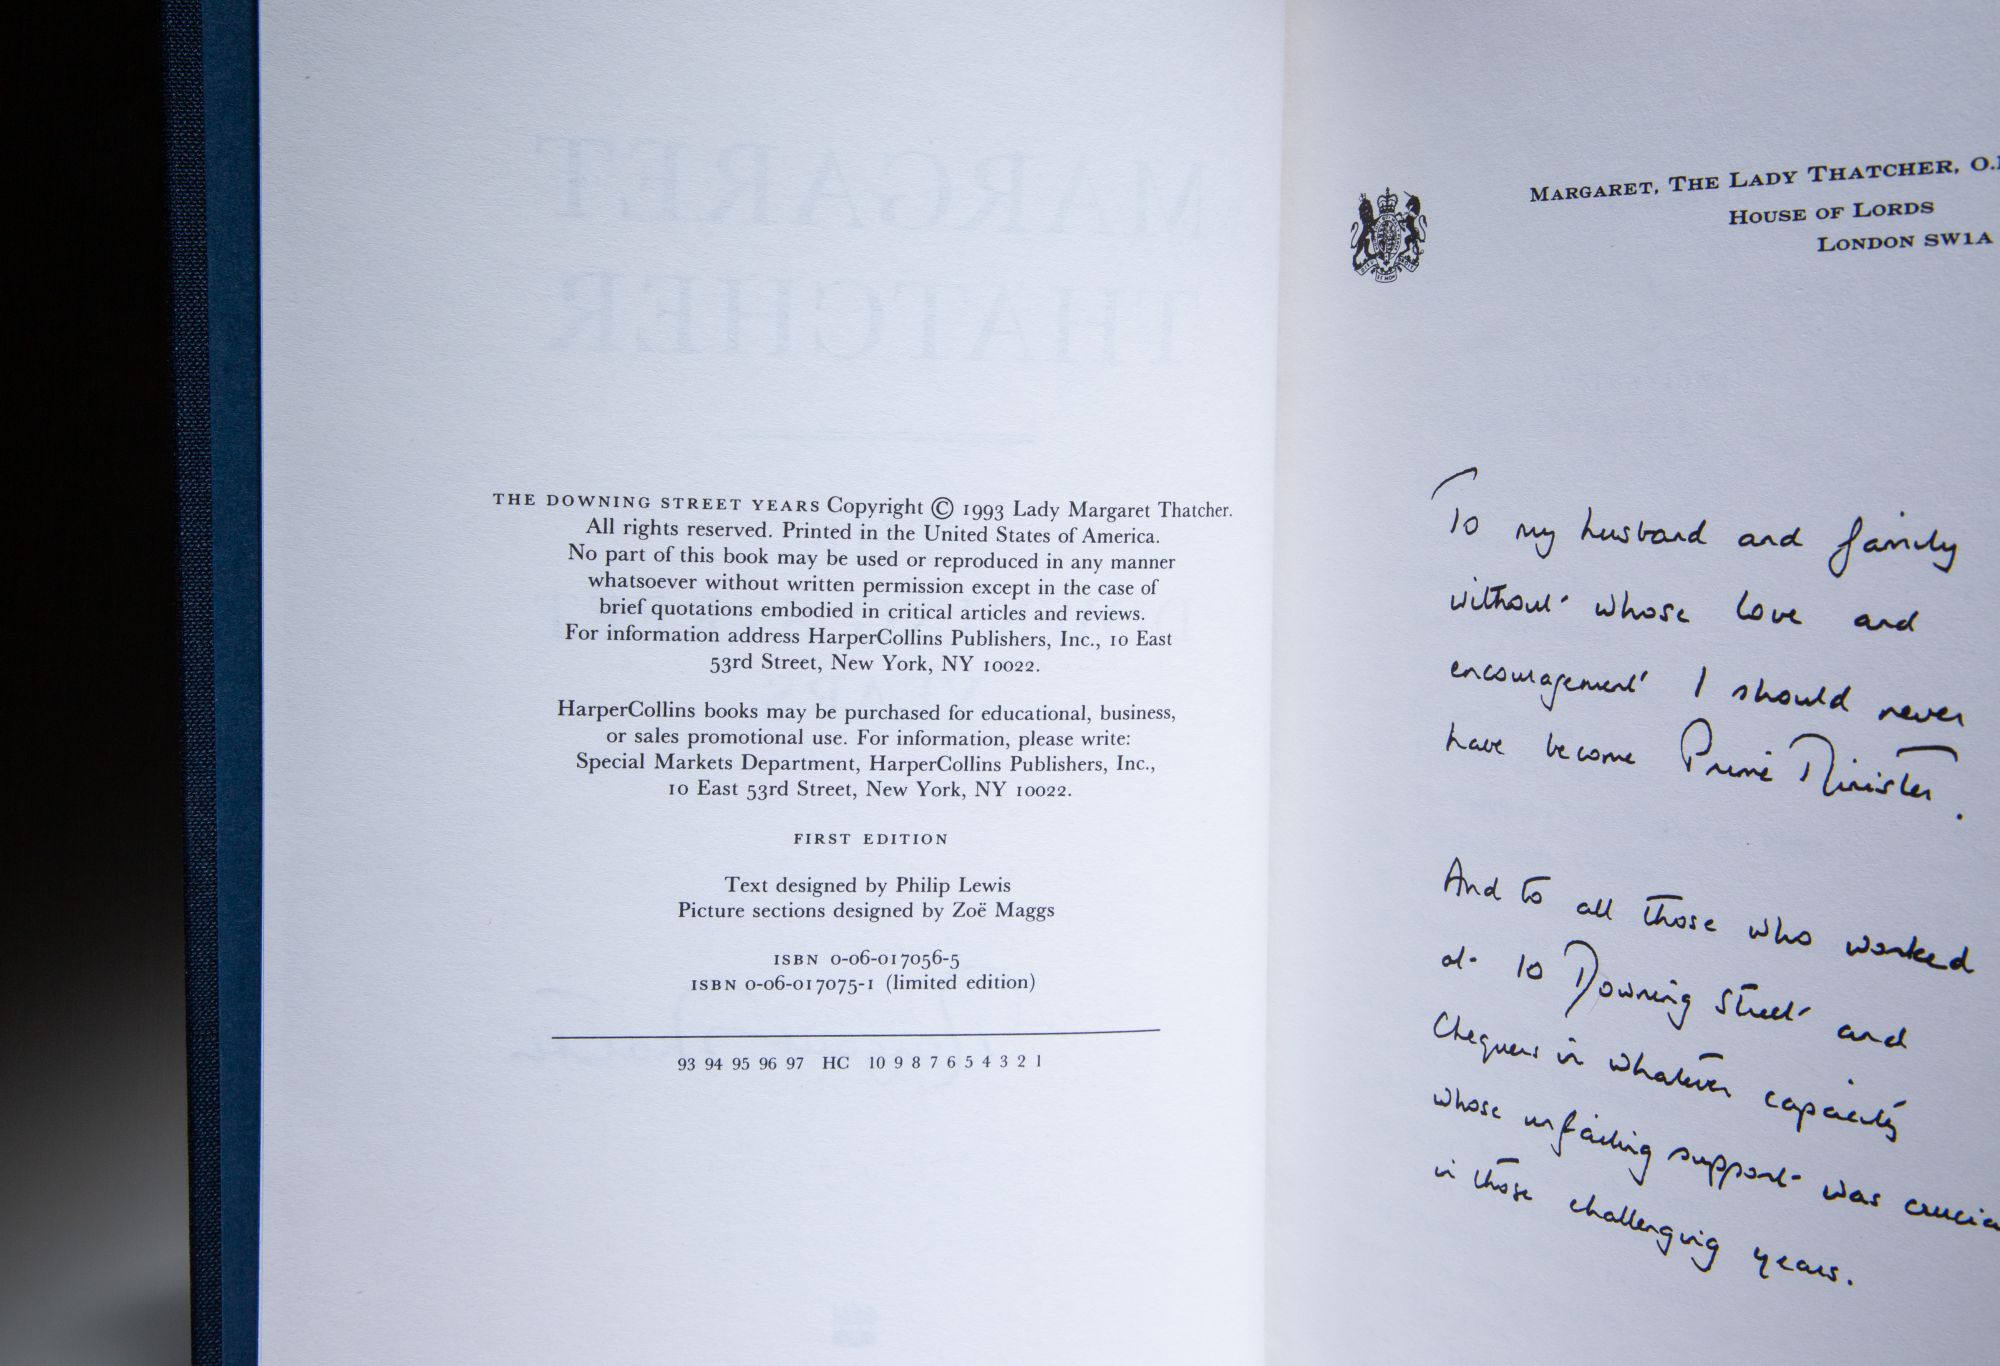 THE DOWNING STREET YEARS Copyright © 1993 Lady Margaret Thatcher.
All rights reserved. Printed in the United States of America.
No part of this book may be used or reproduced in any manner
whatsoever without written permission except in the case of
brief quotations embodied in critical articles and reviews.
For information address HarperCollins Publishers, Inc., 10 East
53rd Street, New York, NY 10022.
HarperCollins books may be purchased for educational, business,
or sales promotional use. For information, please write:
Special Markets Department, HarperCollins Publishers, Inc.,
10 East 53rd Street, New York, NY 10022.
FIRST EDITION
Text designed by Philip Lewis
Picture sections designed by Zoë Maggs
ISBN 0-06-017056-5
ISBN 0-06-017075-1 (limited edition)
93 94 95 96 97 HC 10 9 8 7 6 5 4 3 2 1
MARGARET, THE LADY THATCHER, O.
HOUSE OF LORDS
LONDON SW1A
To my husband and family
without whose love and
encouragement I should never
have become Prime Minister.
And to all those who worked
at 10 Downing Street and
Chequers in whatever capacity
whose unfailing support was crucia
in those challenging years.